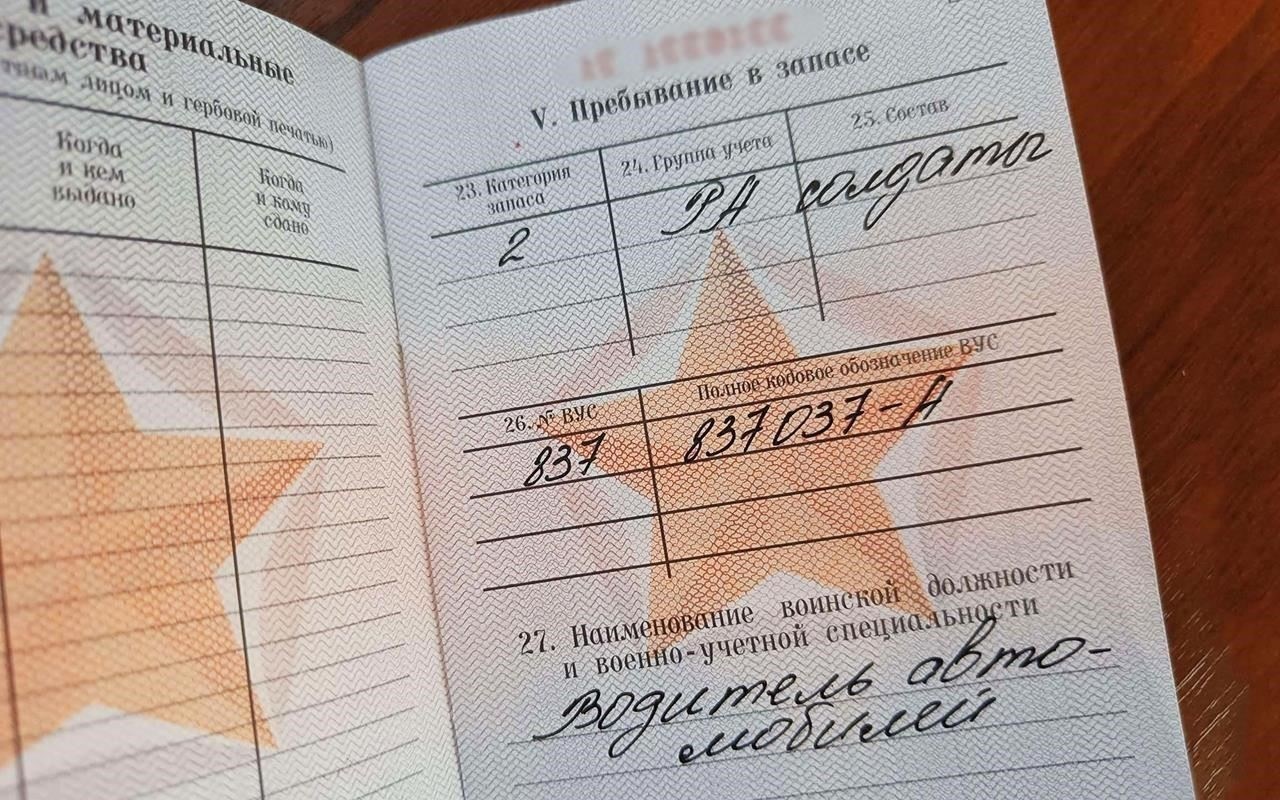 и материальные
средства
и гербовой печатью)
лицом
Когда
и кем
выдано
Когда
и кому
сдано
V. Пребывание в запасе
23. Категория
запаса
24. Группа учета
25. Состав
2
РА
солдаты
26. № ВУС
Полное кодовое обозначение ВУС
837
837037-А
27. Наименование воинской должности
и военно-учетной специальности
Водитель авто-
мобилей